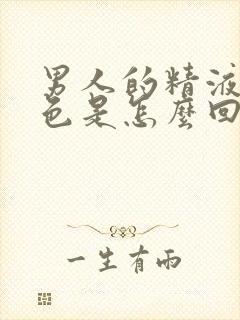 男人的精液
色是怎麼回
一生有雨